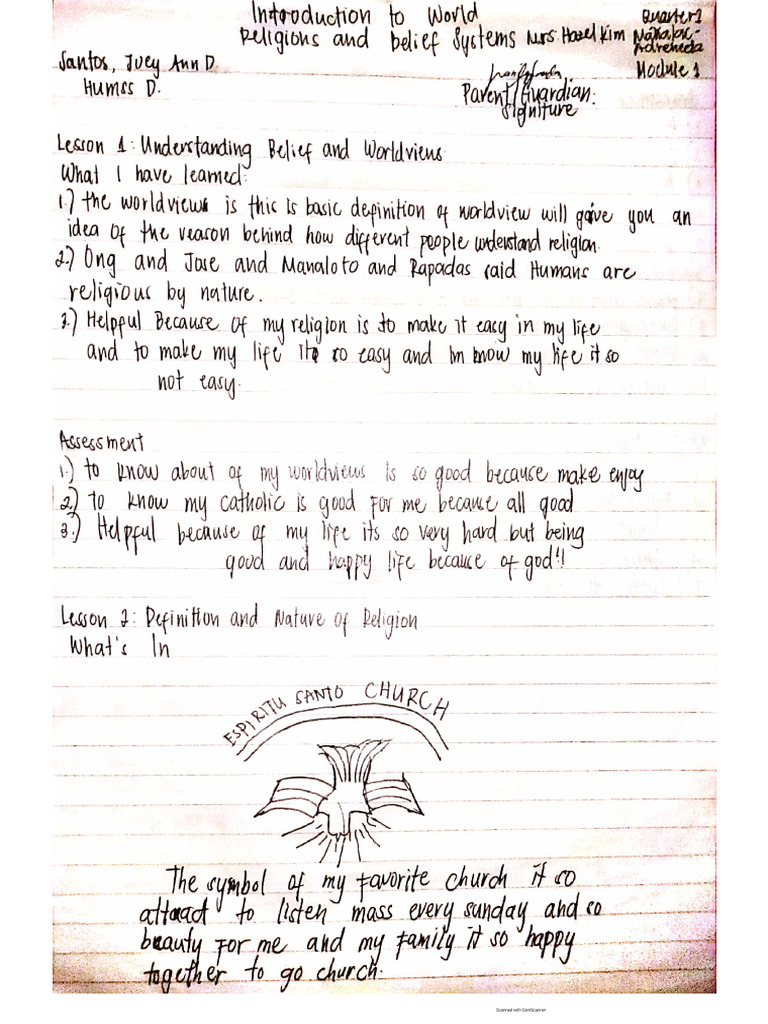 Introduction to World
Religions and belief Systems Mrs Hazel Kim
Quarter 1
Module 1
Santos, Juey Ann D.
Humss D.
Parent/Guardian:
Signiture
Lesson 1: Understanding Belief and Worldviews
What I have learned:
1.) the worldviews is this is basic definition of worldview will give you an
idea of the reason behind how different people understand religion.
2.) Ong and Jose and Manaloto and Rapadas said Humans are
religious by nature.
3.) Helpful Because of my religion is to make it easy in my life
and to make my life so easy and know my life it so
not easy.
Assessment
1.) to know about of my worldviews is so good because make enjoy
2.) to know my catholic is good for me because all good
3.) Helpful because of my life its so very hard but being
good and happy life because of god!!
Lesson 2: Definition and Nature of Religion
What's In
ESPIRITU SANTO CHURCH
The symbol of my favorite church it so
attract to listen mass every sunday and so
beauty for me and my family it so happy
together to go church.
Scanned with CamScanner